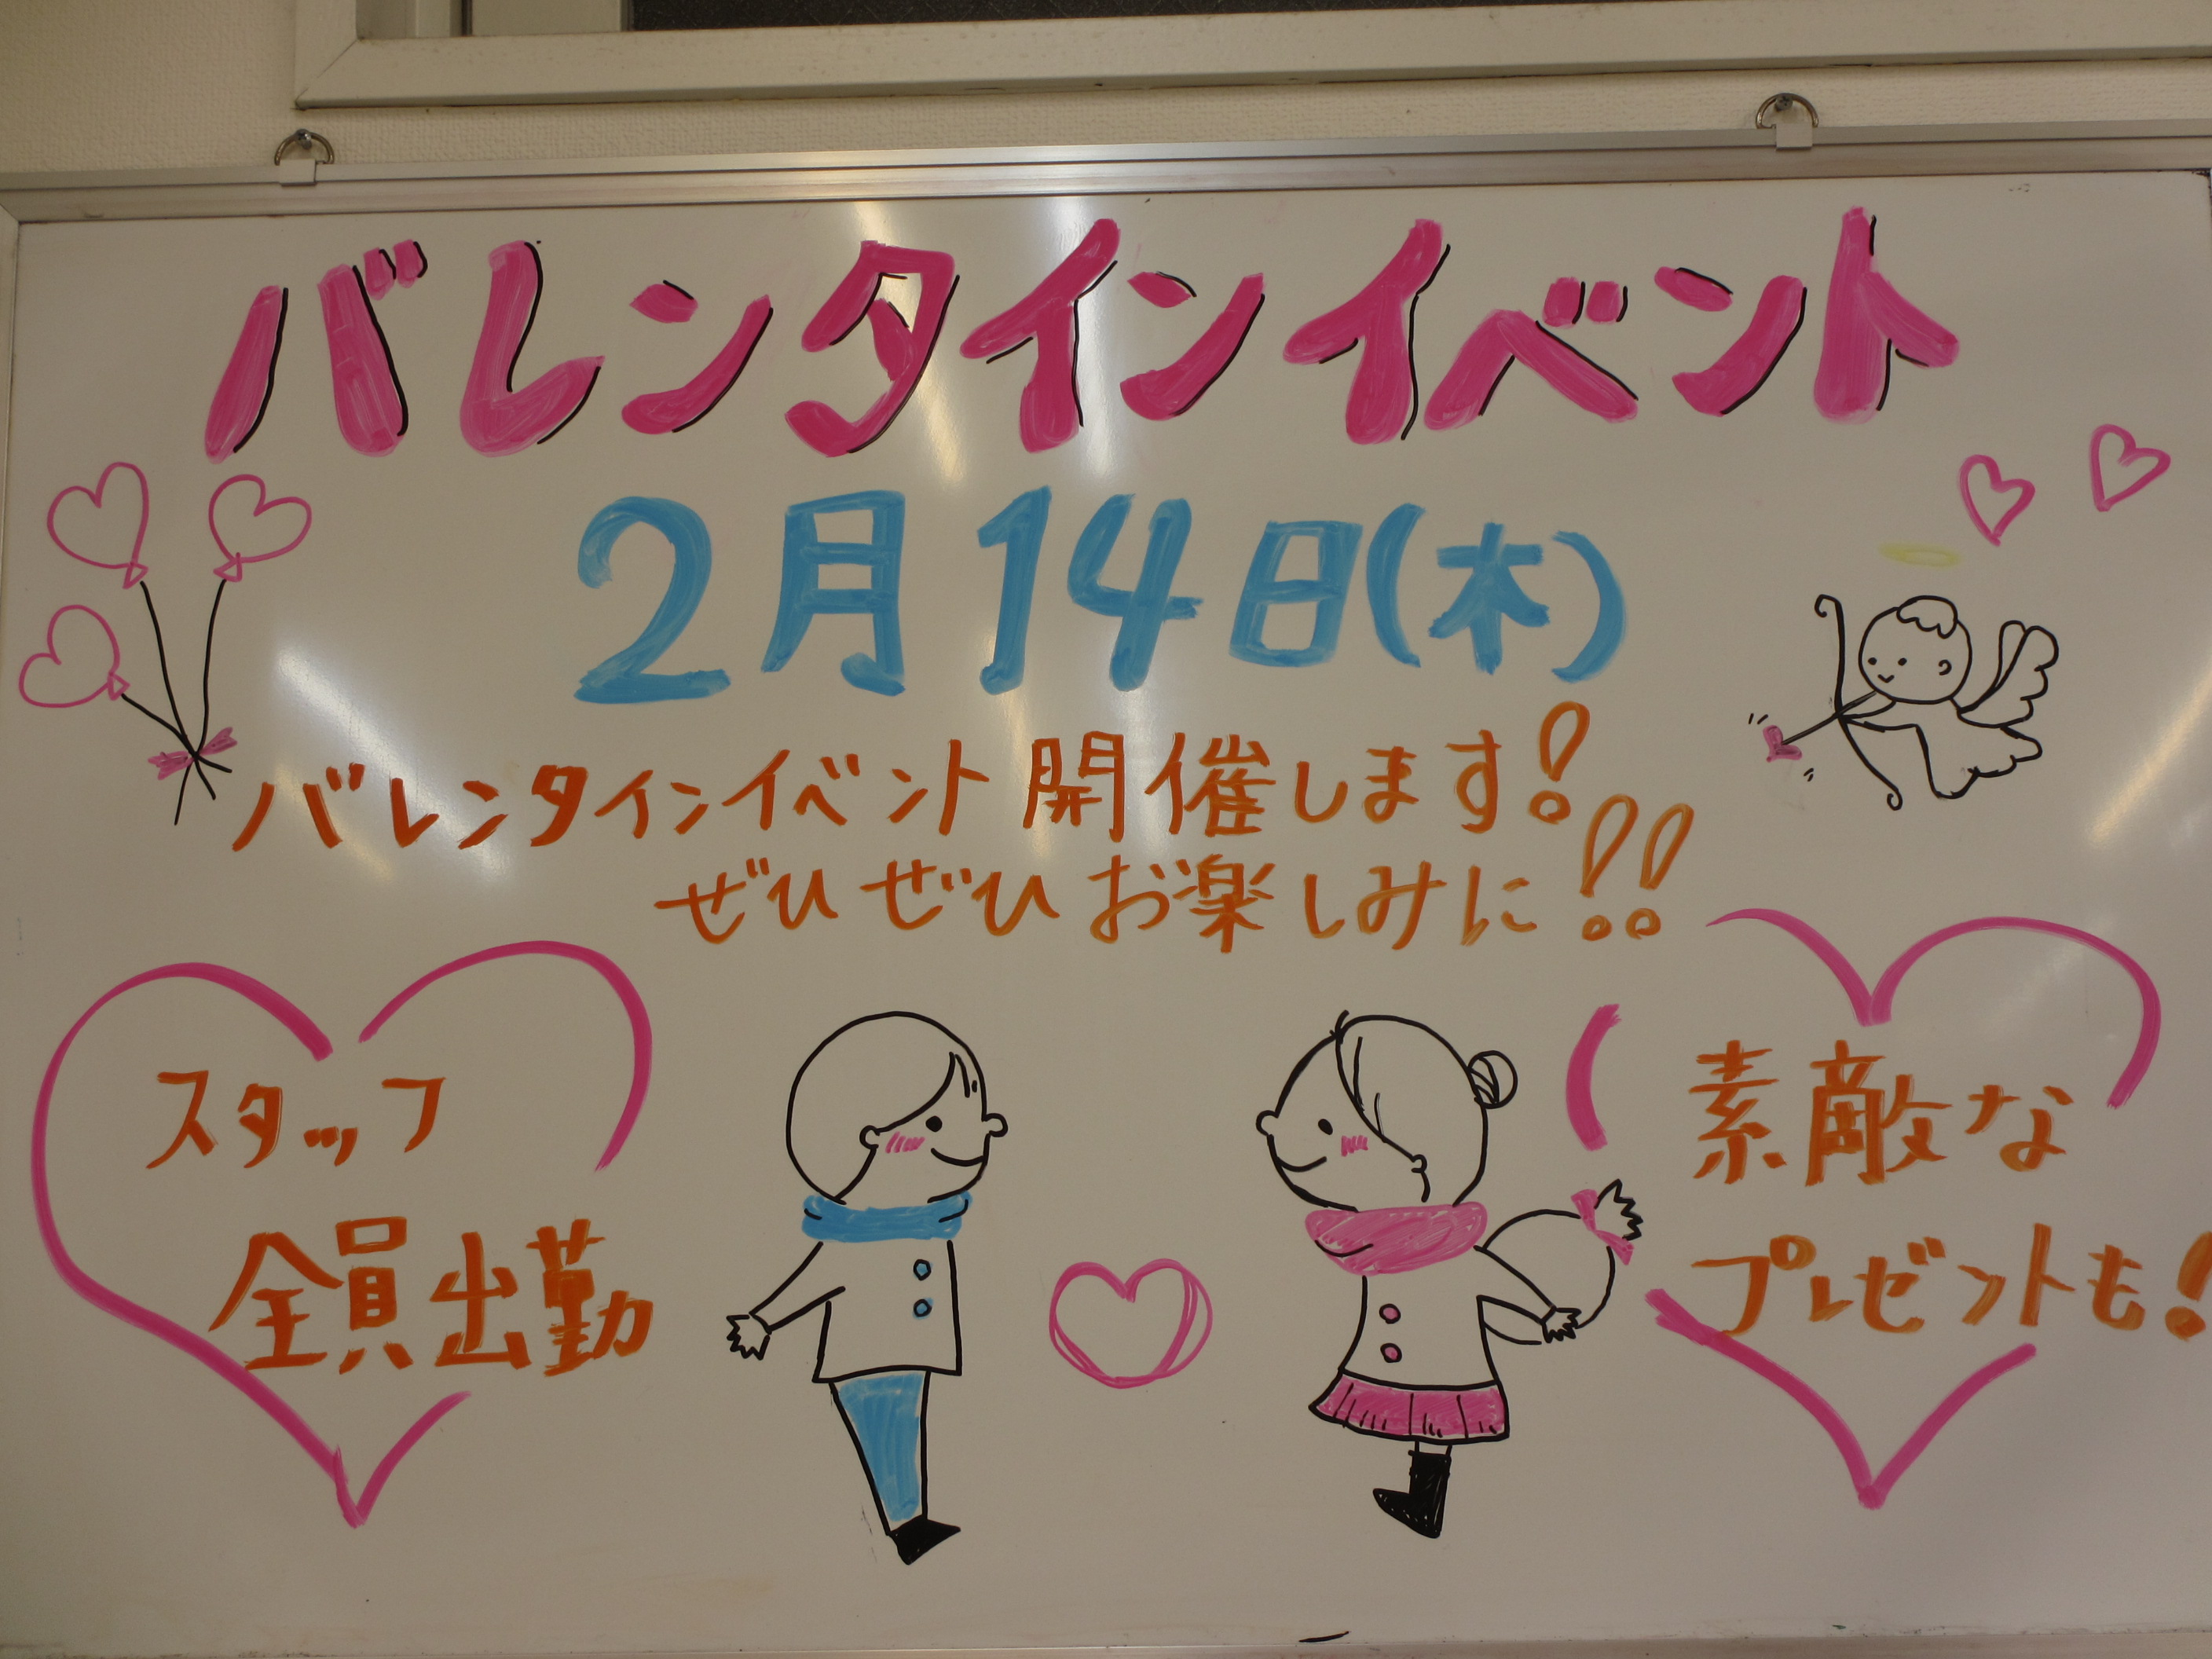 バレンタインイベント
2月14日(木)
バレンタインイベント開催します!
ぜひぜひお楽しみに!!
スタッフ
全員出勤
素敵な
プレゼントも!